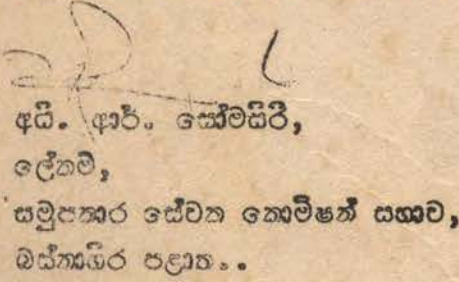 අයි. ආර්. සෝමසිරි,
ලේකම්,
සමුපකාර සේවක කොමිෂන් සභාව,
බස්නාහිර පළාත..